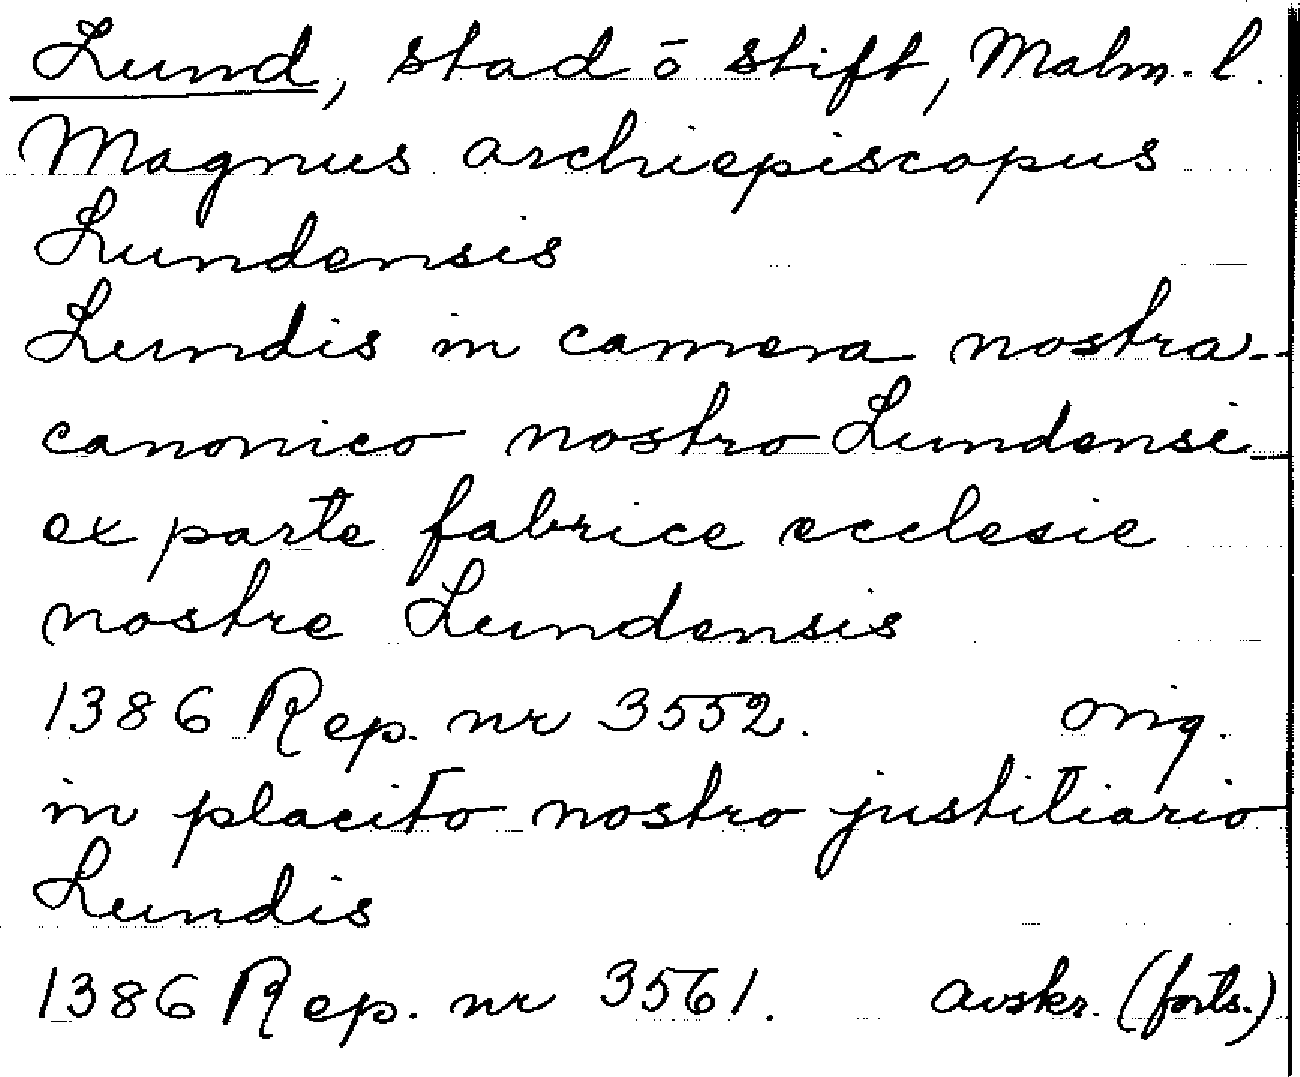 Lund, stad ō stift, Malm. l.
Magnus archiepiscopus
Lundensis
Lundis in camera nostra -
canonico nostro Lundensi -
ex parte fabrice ecclesie
nostre Lundensis
1386 Rep. nr 3552. orig.
in placito nostro justitiario
Lundis
1386 Rep. nr 3561. avskr. (forts.)